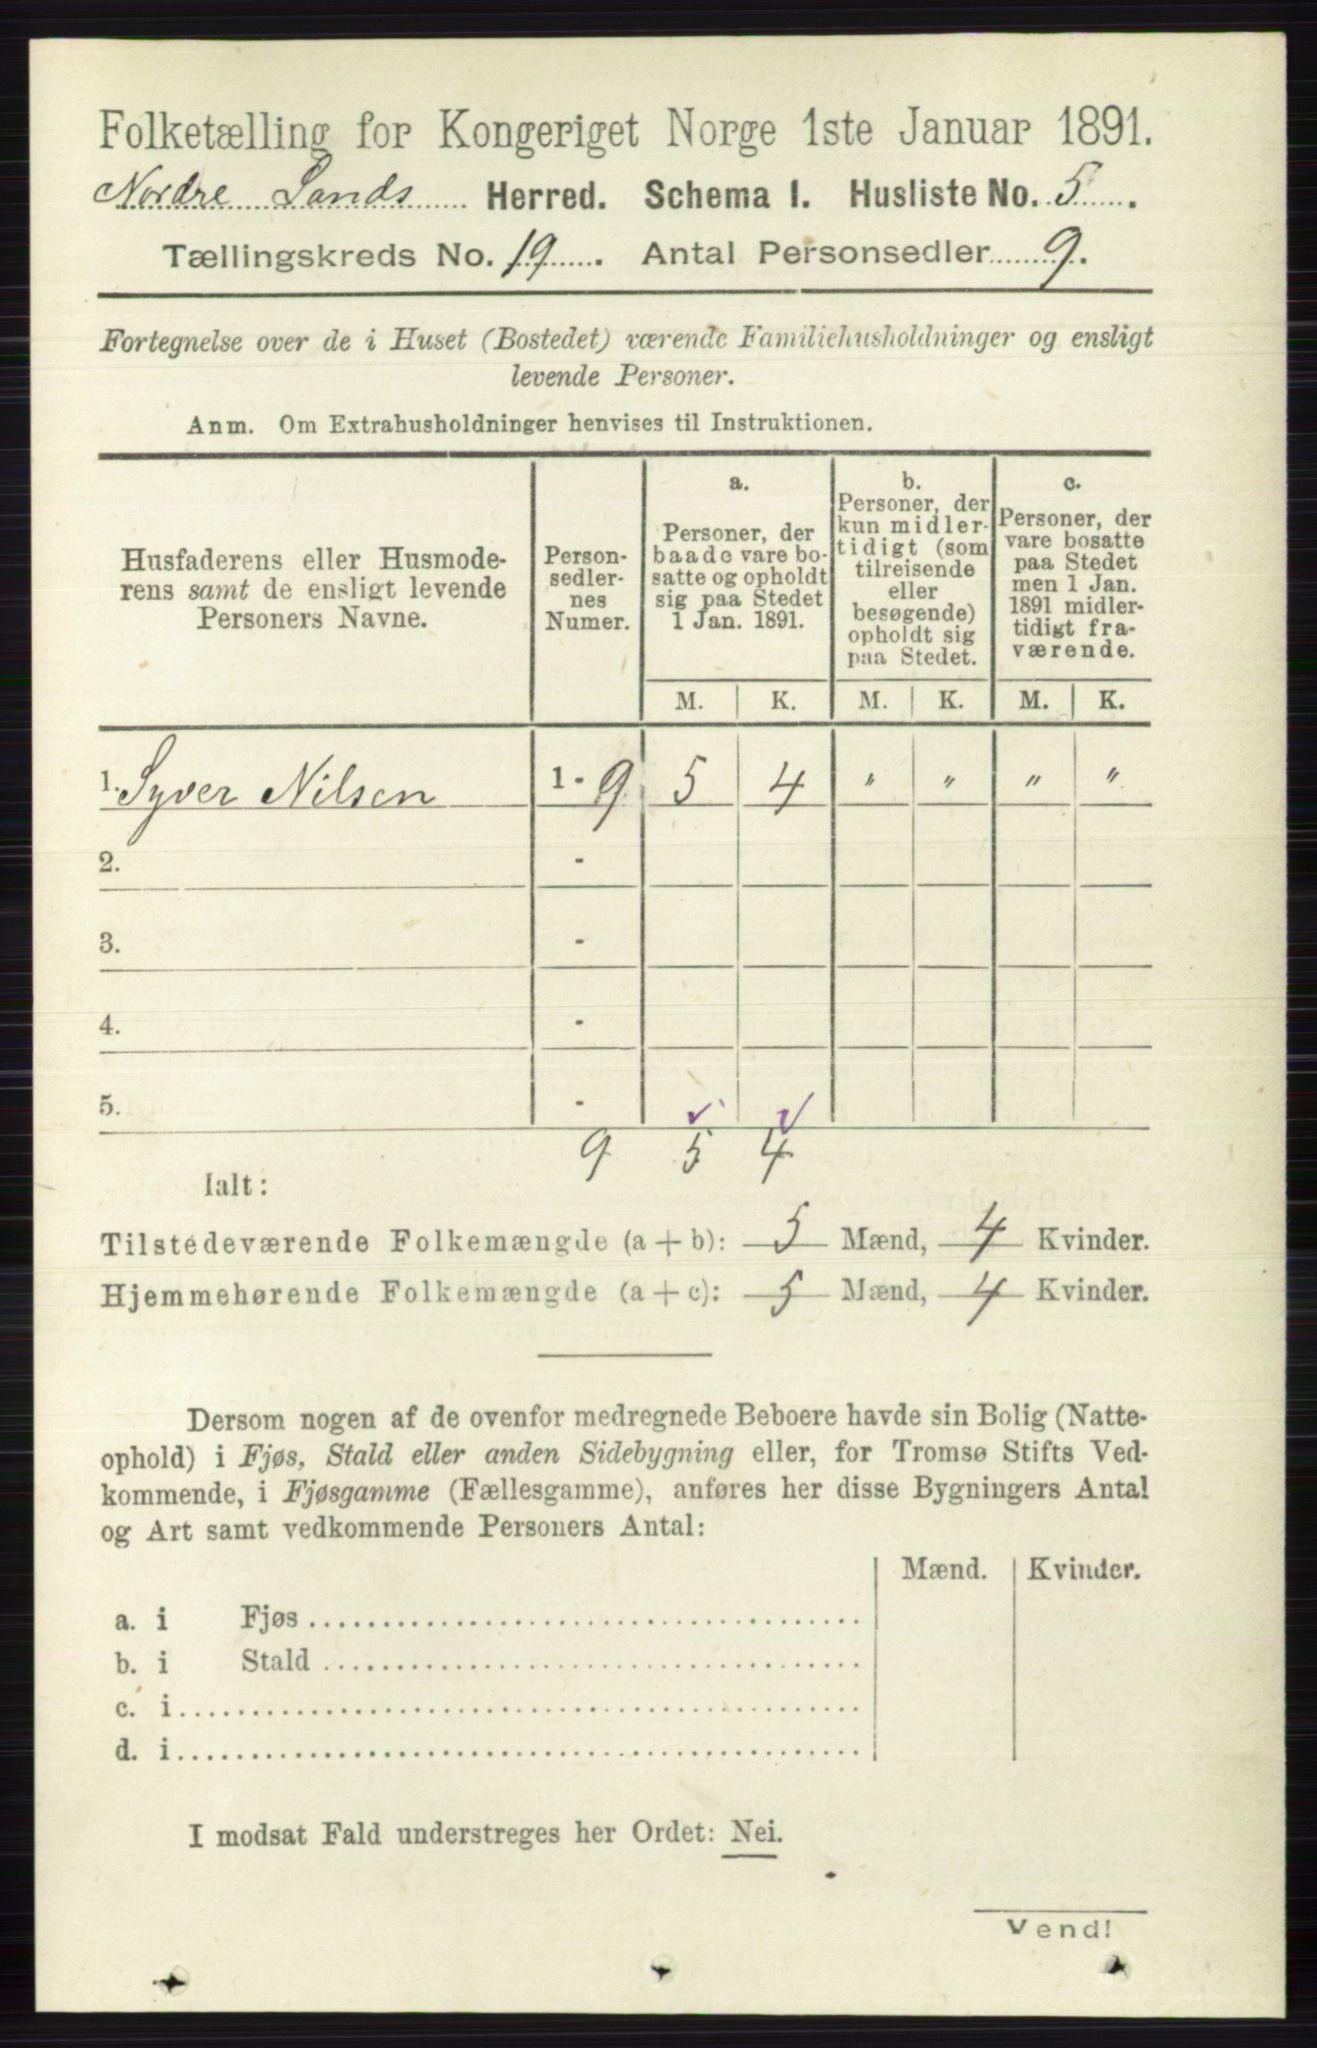 Folketælling for Kongeriget Norge 1ste Januar 1891.
Nordre Lands Herred. Schema I. Husliste No. 5.
Tællingskreds No. 19. Antal Personsedler 9.
Fortegnelse over de i Huset (Bostedet) værende Familiehusholdninger og ensligt
levende Personer.
Anm. Om Extrahusholdninger henvises til Instruktionen.
Husfaderens eller Husmode-
rens samt de ensligt levende
Personers Navne.
Person-
sedler-
nes
Numer.
a.
Personer, der
baade vare bo-
satte og opholdt
sig paa Stedet
1 Jan. 1891.
b.
Personer, der
kun midler-
tidigt (som
tilreisende
eller
besøgende)
opholdt sig
paa Stedet.
c.
Personer, der
vare bosatte
paa Stedet
men 1 Jan.
1891 midler-
tidigt fra-
værende.
M. K. M. K. M. K.
1. Syver Nilsen 1 - 9 5 4 " " " "
2. -
3. -
4. -
5. -
9 5 4
Ialt:
Tilstedeværende Folkemængde (a + b): 5 Mænd, 4 Kvinder.
Hjemmehørende Folkemængde (a + c): 5 Mænd, 4 Kvinder.
Dersom nogen af de ovenfor medregnede Beboere havde sin Bolig (Natte-
ophold) i Fjøs, Stald eller anden Sidebygning eller, for Tromsø Stifts Ved-
kommende, i Fjøsgamme (Fællesgamme), anføres her disse Bygningers Antal
og Art samt vedkommende Personers Antal:
Mænd. Kvinder.
a. i Fjøs
b. i Stald
c. i
d. i
I modsat Fald understreges her Ordet: Nei.
Vend!